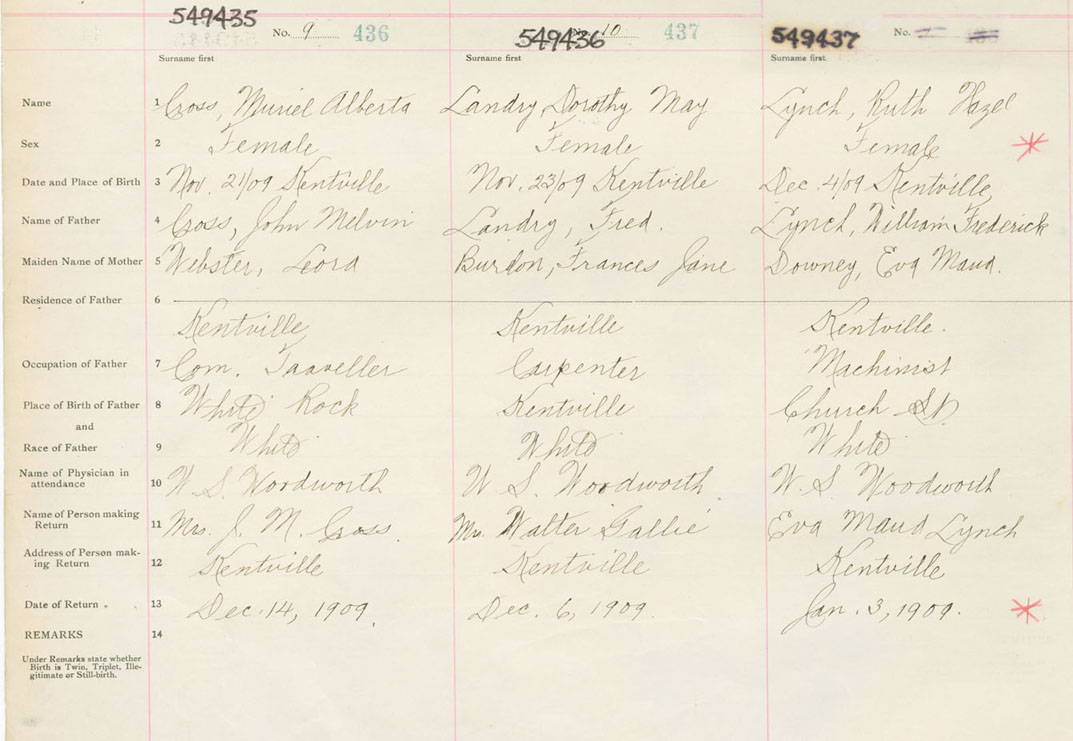 549435 549436 549437
No. 9 436 No. 10 437 No.
Surname first Surname first Surname first
Name 1 Cross, Muriel Alberta Landry, Dorothy May Lynch, Ruth Hazel
Sex 2 Female Female Female
Date and Place of Birth 3 Nov. 21/09 Kentville Nov. 23/09 Kentville Dec. 4/09 Kentville
Name of Father 4 Cross, John Melvin Landry, Fred. Lynch, William Frederick
Maiden Name of Mother 5 Webster, Leora Burdon, Frances Jane Downey, Eva Maud.
Residence of Father 6
Kentville Kentville Kentville.
Occupation of Father 7 Com. Traveller Carpenter Machinist
Place of Birth of Father 8 White Rock Kentville Church St
and
Race of Father 9 White White White
Name of Physician in
attendance 10 W. S. Woodworth W. S. Woodworth W. S. Woodworth
Name of Person making
Return 11 Mrs. J. M. Cross. Mrs. Walter Gallie Eva Maud Lynch
Address of Person mak-
ing Return 12 Kentville Kentville Kentville
Date of Return 13 Dec. 14, 1909. Dec. 6, 1909. Jan. 3, 1909.
REMARKS 14
Under Remarks state whether
Birth is Twin, Triplet, Ille-
gitimate or Still-birth.